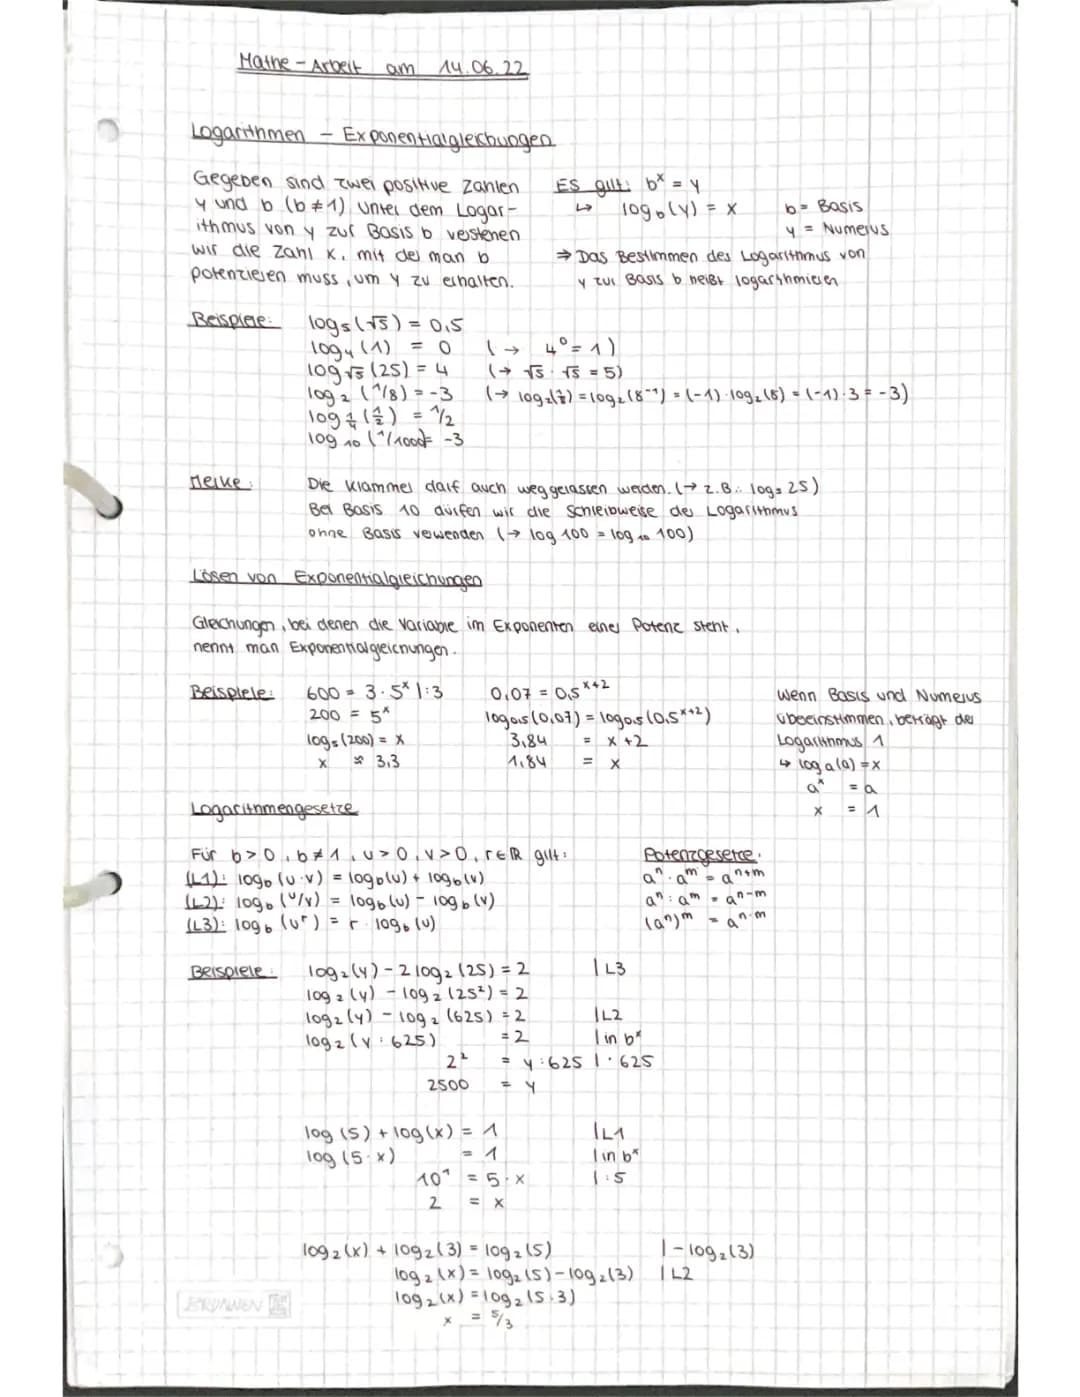 Mathe-Arbeit am 14.06.22
Logarithmen - Exponentialgleichungen
Gegeben sind zwei positive Zahlen
y und b (b ≠ 1) Unter dem Logar-
ithmus von y zur Basis b verstehen
wir die Zahl x, mit der man b
potenzieren muss, um y zu erhalten.
Es gilt: b^x = y
↳ log_b(y) = x
b = Basis
y = Numerus
⇒ Das Bestimmen des Logarithmus von
y zur Basis b heißt logarithmieren
Beispiele:
log_5(√5) = 0,5
log_4(1) = 0 (→ 4^0 = 1)
log_√5(25) = 4 (→ √5 · √5 = 5)
log_2(1/8) = -3 (→ log_2(1/8) = log_2(8^-1) = (-1) · log_2(8) = (-1) · 3 = -3)
log_1/4(1/2) = 1/2
log_10(1/1000) = -3
Merke:
Die Klammer darf auch weggelassen werden. (→ z.B.: log_5 25)
Bei Basis 10 dürfen wir die Schreibweise des Logarithmus
ohne Basis verwenden (→ log 100 = log_10 100)
Lösen von Exponentialgleichungen
Gleichungen, bei denen die Variable im Exponenten einer Potenz steht,
nennt man Exponentialgleichungen.
Beispiele:
600 = 3 · 5^x |:3
200 = 5^x
log_5(200) = x
x ≈ 3,3
0,07 = 0,5^x+2
log_0,5(0,07) = log_0,5(0,5^x+2)
3,84 = x + 2
1,84 = x
Wenn Basis und Numerus
übereinstimmen, beträgt der
Logarithmus 1
↳ log_a(a) = x
a^x = a
x = 1
Logarithmengesetze
Für b > 0, b ≠ 1, u > 0, v > 0, r ∈ ℝ gilt:
(L1): log_b(u · v) = log_b(u) + log_b(v)
(L2): log_b(u/v) = log_b(u) - log_b(v)
(L3): log_b(u^r) = r · log_b(u)
Potenzgesetze:
a^n · a^m = a^n+m
a^n : a^m = a^n-m
(a^n)^m = a^n·m
Beispiele:
log_2(y) - 2 log_2(25) = 2 | L3
log_2(y) - log_2(25²) = 2
log_2(y) - log_2(625) = 2 | L2
log_2(y : 625) = 2 | in b^x
2² = y : 625 | · 625
2500 = y
log(5) + log(x) = 1 | L1
log(5 · x) = 1 | in b^x
10^1 = 5 · x | :5
2 = x
log_2(x) + log_2(3) = log_2(5) | - log_2(3)
log_2(x) = log_2(5) - log_2(3) | L2
log_2(x) = log_2(5:3)
x = 5/3
BRUNNEN